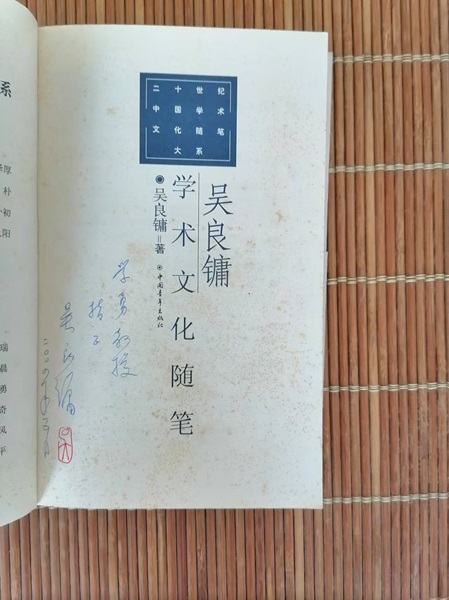 系
厚
朴
初
阳
瑞
晨
勇
奇
凤
平
二十世纪
中国学术
文化随笔
大系
吴良镛
学术文化随笔
吴良镛=著
中国青年出版社
学勇教授
指正
吴良镛